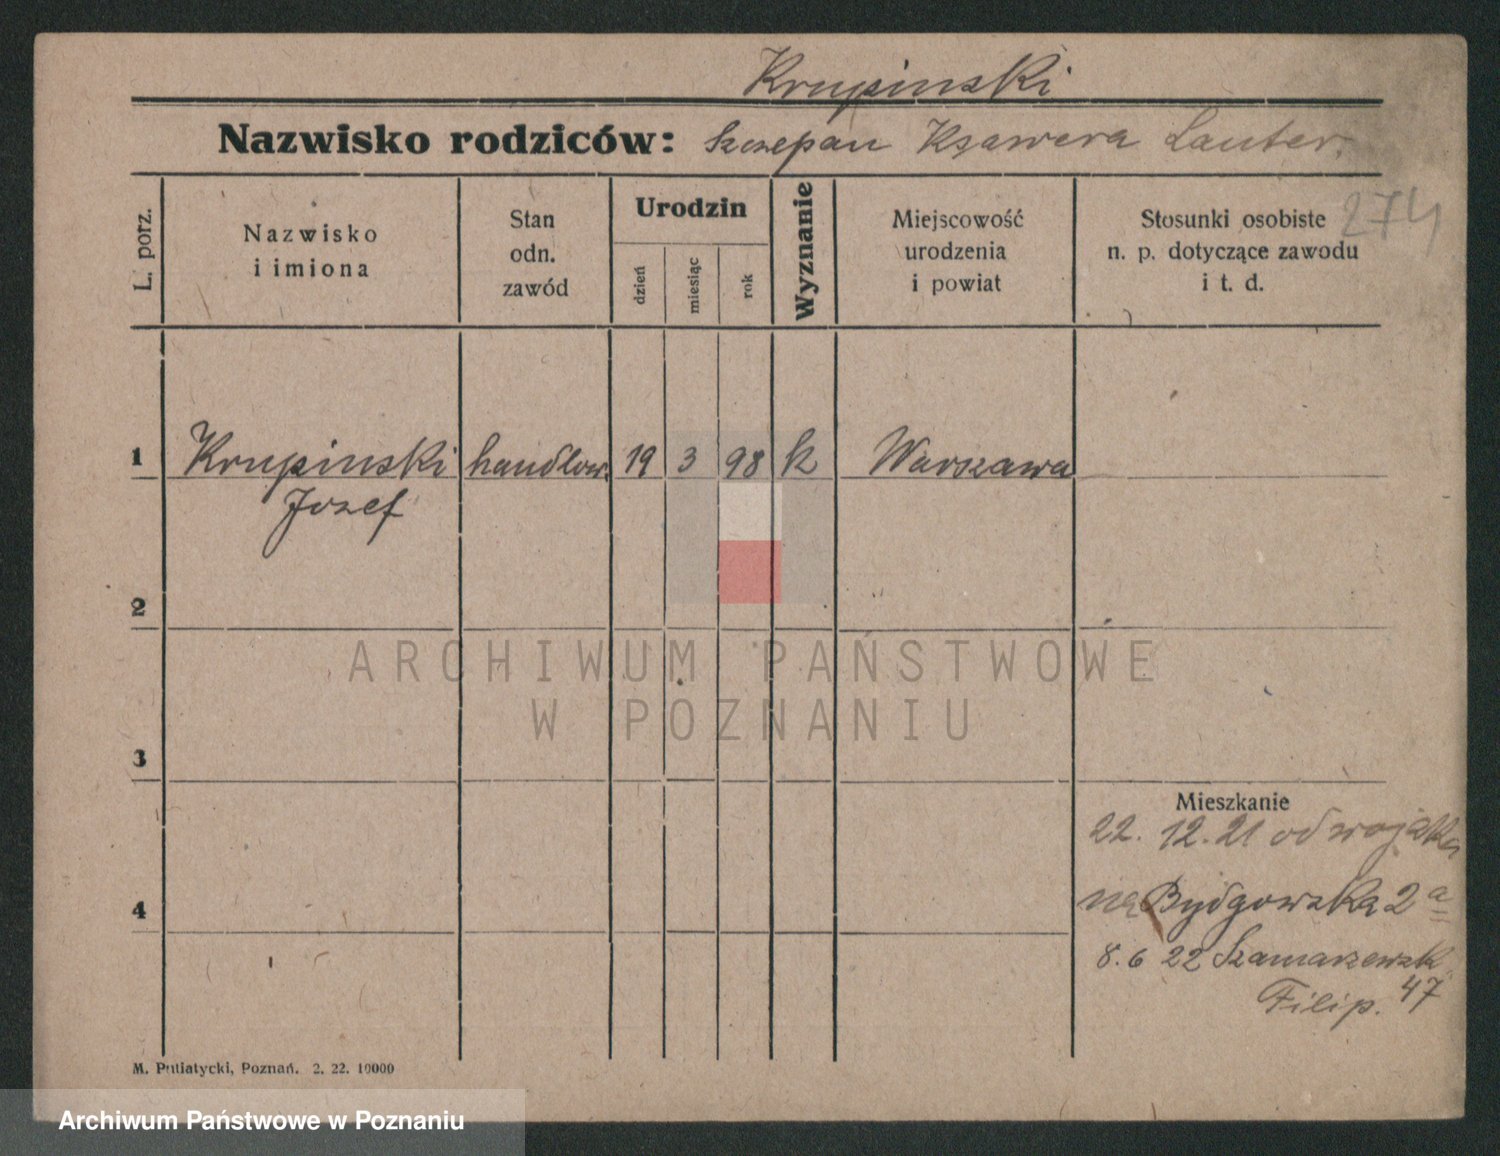 Krupinski
Nazwisko rodziców: Szczepan Ksawera Lauter.
274
L. porz.
Nazwisko
i imiona
Stan
odn.
zawód
Urodzin
dzień
miesiąc
rok
Wyznanie
Miejscowość
urodzenia
i powiat
Stosunki osobiste
n. p. dotyczące zawodu
i t. d.
1 Krupinski handlow. 19 3 98 k Warszawa
Jozef
2
ARCHIWUM PAŃSTWOWE
W POZNANIU
3
Mieszkanie
22. 12. 21 od wojska
4
na Bydgowska 2 a
8. 6 22 Szamarzewsk
Filip. 47
M. Putiatycki, Poznań. 2. 22. 10000
Archiwum Państwowe w Poznaniu